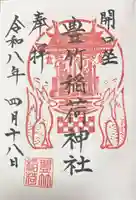 開口
豊竹稲荷神社
奉拝
令和八年 四月十八日